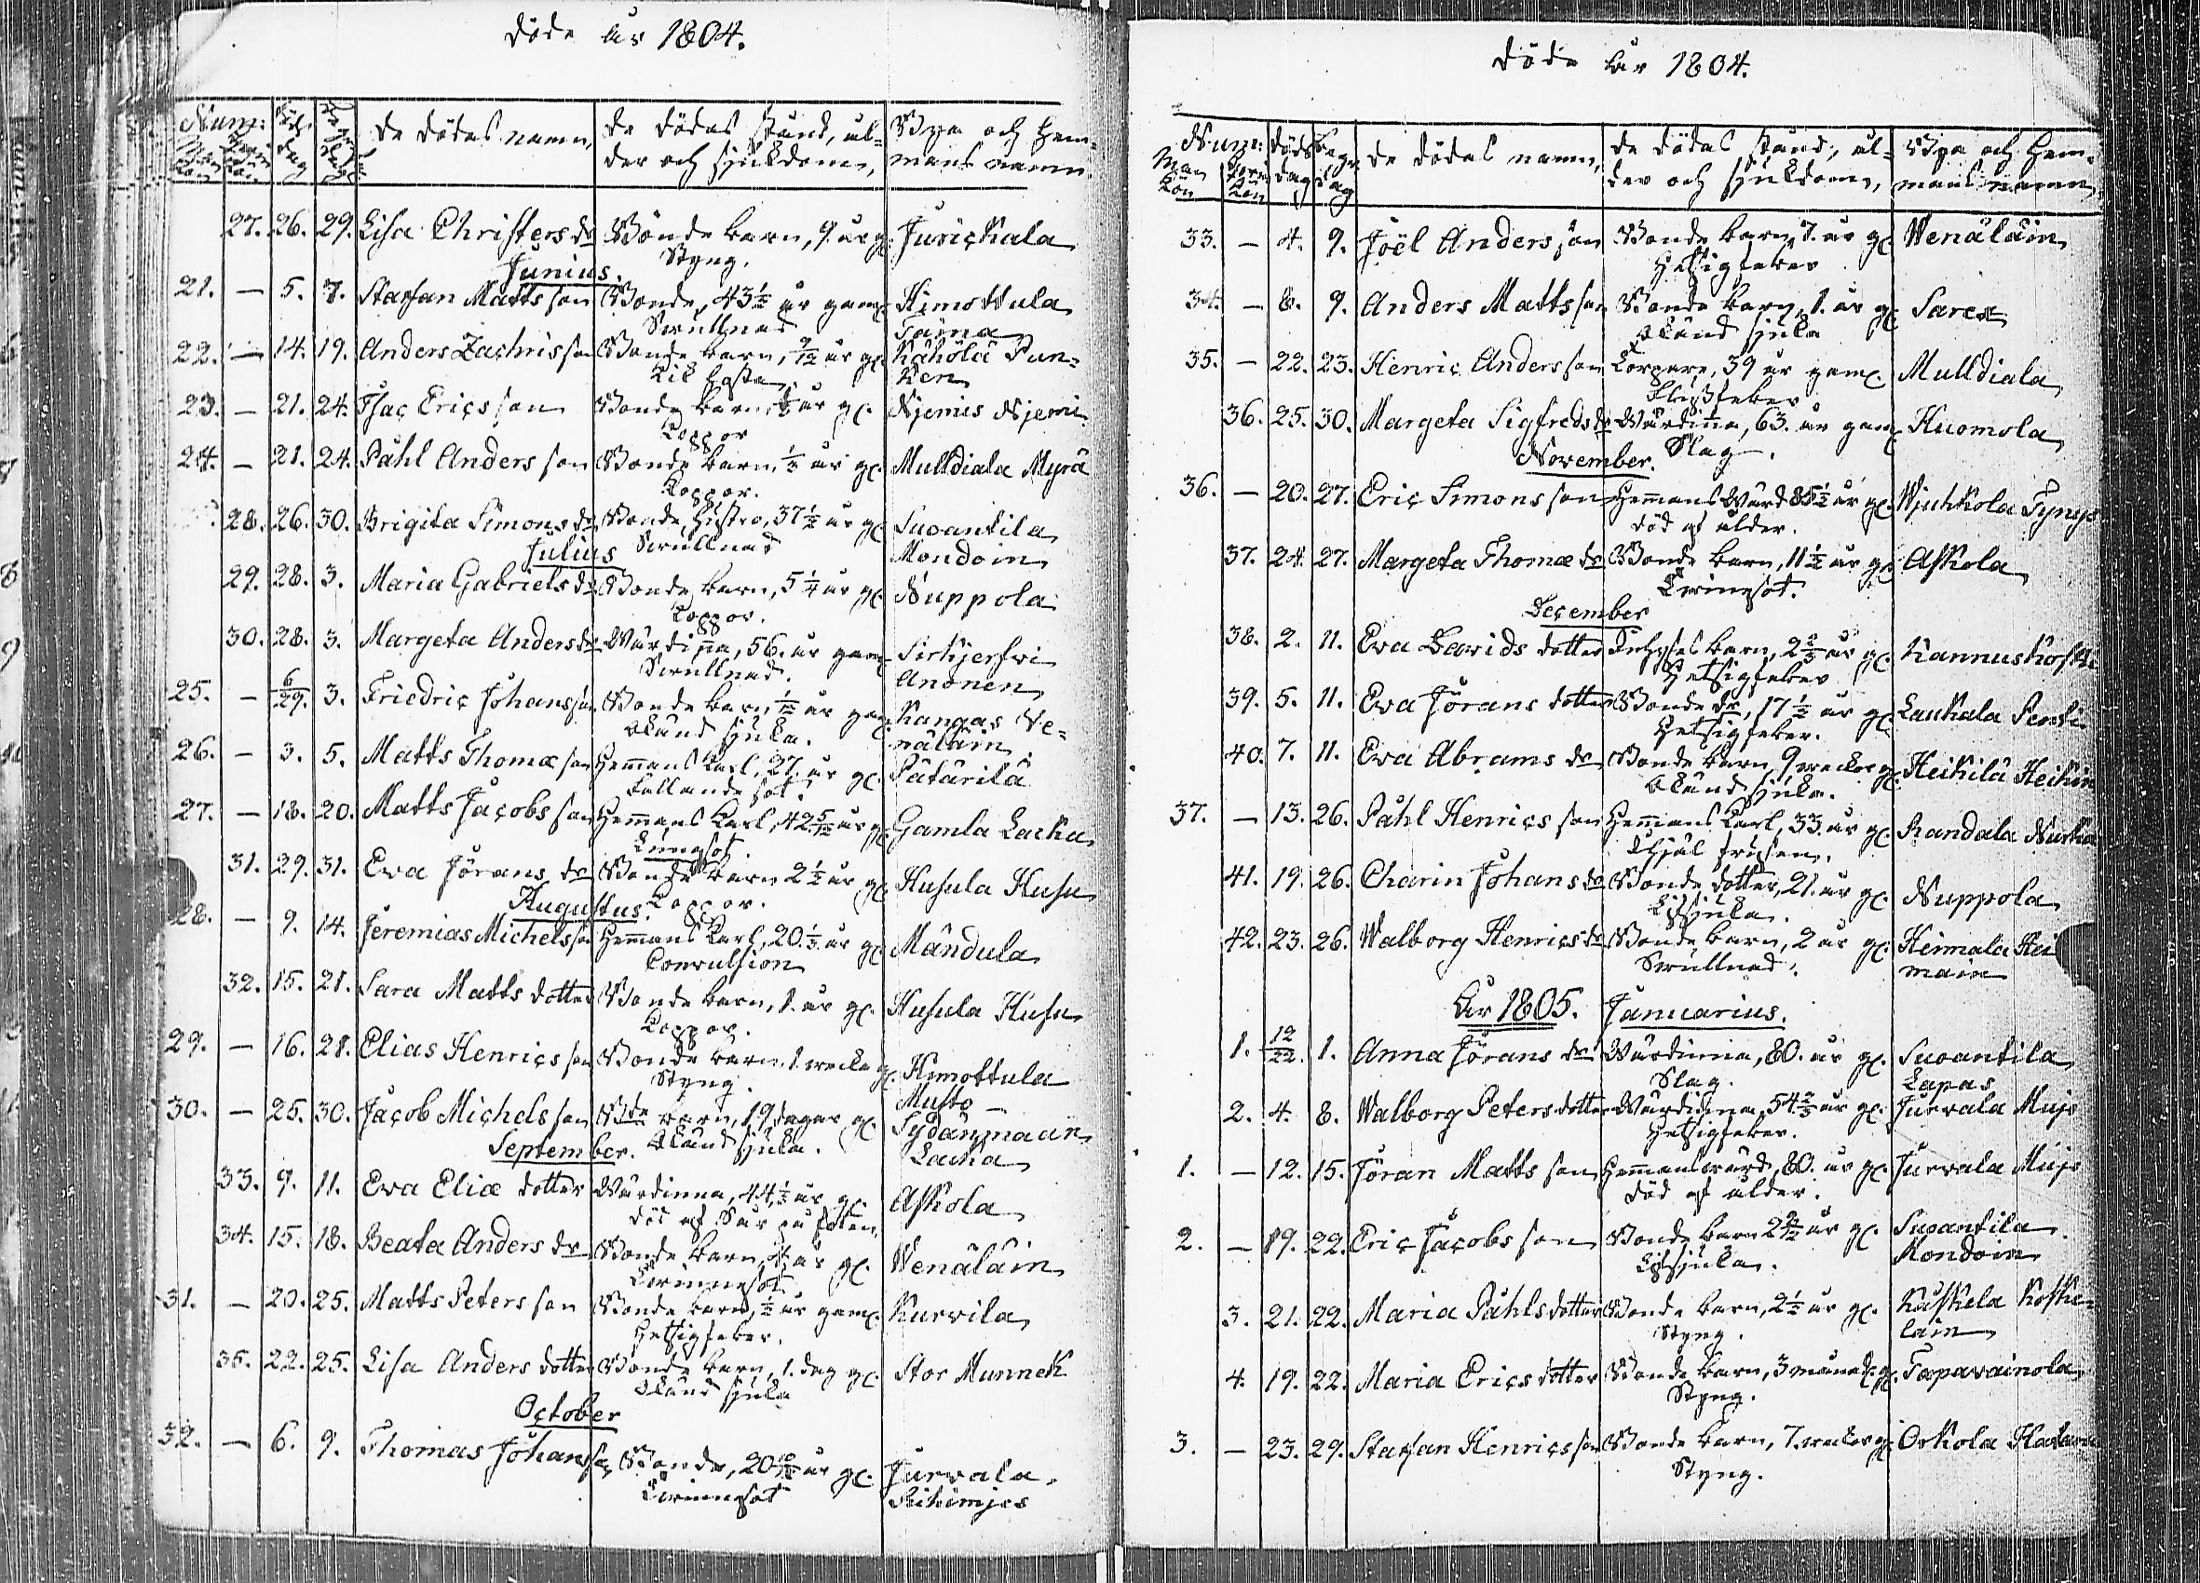 Döde år 1804.
Num: Man Kön Qwin Kön Döds dag Begr: dag De dödas namn, De dödas stånd, ål- Bya och Hem-
der och sjukdom, mans namn
27. 26. 29. Lisa Christers dr Bonde barn, 9. år gl. Jurickala
Styng.
Junius.
21. — 5. 7. Staffan Matts son Bonde, 43½ år gam. Kimottula
Swullnad Taina
22. — 14. 19. Anders Zachris son Bonde barn, 9/12 år gl. Kähölä Pun-
Kik hosta ken
23. — 21. 24. Isac Erics son Bonde barn, år gl. Njemis Njemi
Koppor
24. — 21. 24. Påhl Anders son Bonde barn, år gl. Mulldiala Myrä
Koppor.
28. 26. 30. Brigita Simons dr Bonde hustro, 37½ år gl. Suoantila
Swullnad Mondoin
Julius
29. 28. 3. Maria Gabriels dr Bonde barn, 5¼ år gl. Nuppola
Koppor.
30. 28. 3. Margeta Anders dr Wärdinna, 56. år gam. Sirkjerfwi
Swullnad. Anonen
25. — 6/29. 3. Friedric Johans son Bonde barn, år gam. Kangas We-
okänd sjuka. näläin
26. — 3. 5. Matts Thomæ son Hemmans Karl, 27. år gl. Pätärilä
Fallande sot.
27. — 18. 20. Matts Jacobs son Hemmans Karl, 42 5/12 år gl. Gamla Lacka
Lungsot
31. 29. 31. Ewa Jörans dr Bonde barn 2½ år gl. Husula Husu
Koppor.
Augustus.
28. — 9. 14. Jeremias Michels son Hemmans Karl, 20⅓ år gl. Mändula
Convulsion
32. 15. 21. Sara Matts dotter Bonde barn, 1. år gl. Husula Husu
Koppor.
29. — 16. 21. Elias Henrics son Bonde barn 1 wecka gl. Kimottula
Styng. Musto
30. — 25. 30. Jacob Michels son Bde barn, 19 dagar gl. Sydänmaan
okänd sjuka. Lacka
September.
33. 9. 11. Ewa Eliæ dotter Wärdinna, 44½ år gl. Askola
död af Sår på foten
34. 15. 18. Beata Anders dr Bonde barn, år gl. Wenäläin
Twinnsot
31. — 20. 25. Matts Peters son Bonde barn, ½ år gam. Kurvila
Hetsigfeber.
35. 22. 25. Lisa Anders dotter Bonde barn, 1. dag gl. Stor Munnek
okänd sjuka
October
32. — 6. 9. Thomas Johans son Bonde, 20 år gl. Jurvala
Twinnsot Rihimjes
Döde år 1804.
Num: Man Kön Qwin Kön Döds dag Begr: dag De dödas namn, De dödas stånd, ål- Bya och Hem-
der och sjukdom, mans namn
33. — 4. 9. Joël Anders son Bonde barn, 7. år gl. Wenäläin
Hetsigfeber
34. — 8. 9. Anders Matts son Bonde barn, 1. år gl. Sarca
okänd sjuka
35. — 22. 23. Henric Anders son Torpare, 39 år gam. Mulldiala
Flussfeber
36. 25. 30. Margeta Sigfreds dr Wärdinna, 63. år gam. Kuomola
Slag.
November.
36. — 20. 27. Eric Simons son Hemmans Wärd 85½ år gl. Wjuhkola Tynys
död af ålder.
37. 24. 27. Margeta Thomæ dr Bonde barn, 11½ år gl. Askola
Twinsot.
December
38. 2. 11. Ewa Davids dotter Inhyses barn, 2⅔ år gl. Kannuskoski
Hetsigfeber
39. 5. 11. Ewa Jörans dotter Bonde dr, 17½ år gl. Laukala Pentti
Hetsigfeber.
40. 7. 11. Ewa Abrams dr Bonde barn, 9 weckor gl. Heikilä Heikin
okänd sjuka.
37. — 13. 26. Påhl Henrics son Hemmans Karl, 33. år gl. Randala Nurka
Ihjäl frusen.
41. 19. 26. Charin Johans dr Bonde dotter, 21. år gl. Nuppola
42. 23. 26. Walborg Henrics dr Bonde barn, 2 år gl. Heimala Hei
Swullnad. main
År 1805. Januarius.
1. 12/22. 1. Anna Jörans dr Wärdinna, 80. år gl. Suoantila
Slag. Lapas
2. 4. 8. Walborg Peters dotter Wärdinna, 54⅔ år gl. Jurvala Mujo
Hetsigfeber.
1. — 12. 15. Jöran Matts son Hemmanswärd, 80. år gl. Jurvala Mujo
död af ålder.
2. — 19. 22. Eric Jacobs son Bonde barn 2 år gl. Suoantila
Kondoin
3. 21. 22. Maria Påhls dotter Bonde barn, 2½ år gl. Käskela Koske-
Styng. lain
4. 19. 22. Maria Erics dotter Bonde barn, 3 månad. gl. Tapavainola
Styng.
3. — 23. 29. Staffan Henrics son Bonde barn, 7. weckor gl. Orkola
Styng.